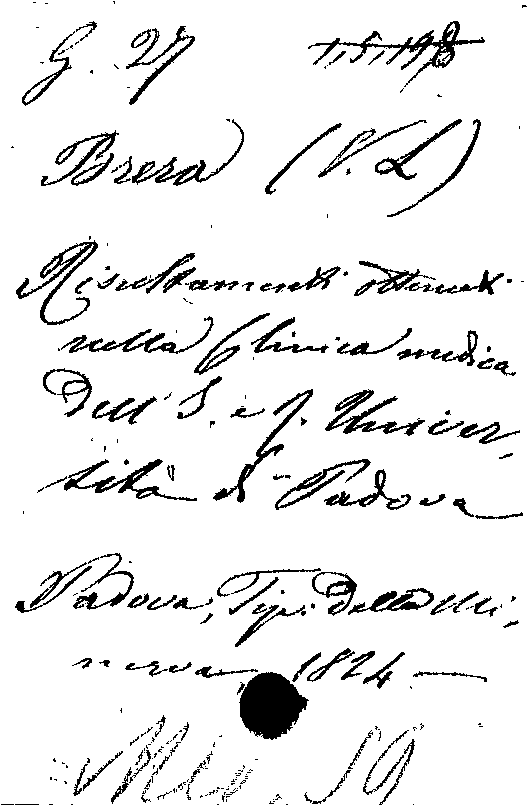 G. 27 1,5,198
Brera (V. L)
Risultamenti ottenuti
nella Clinica medica
dell' I. e R. Univer,
sità di Padova
Padova, Tip. della Mi,
nerva, 1824 —
59